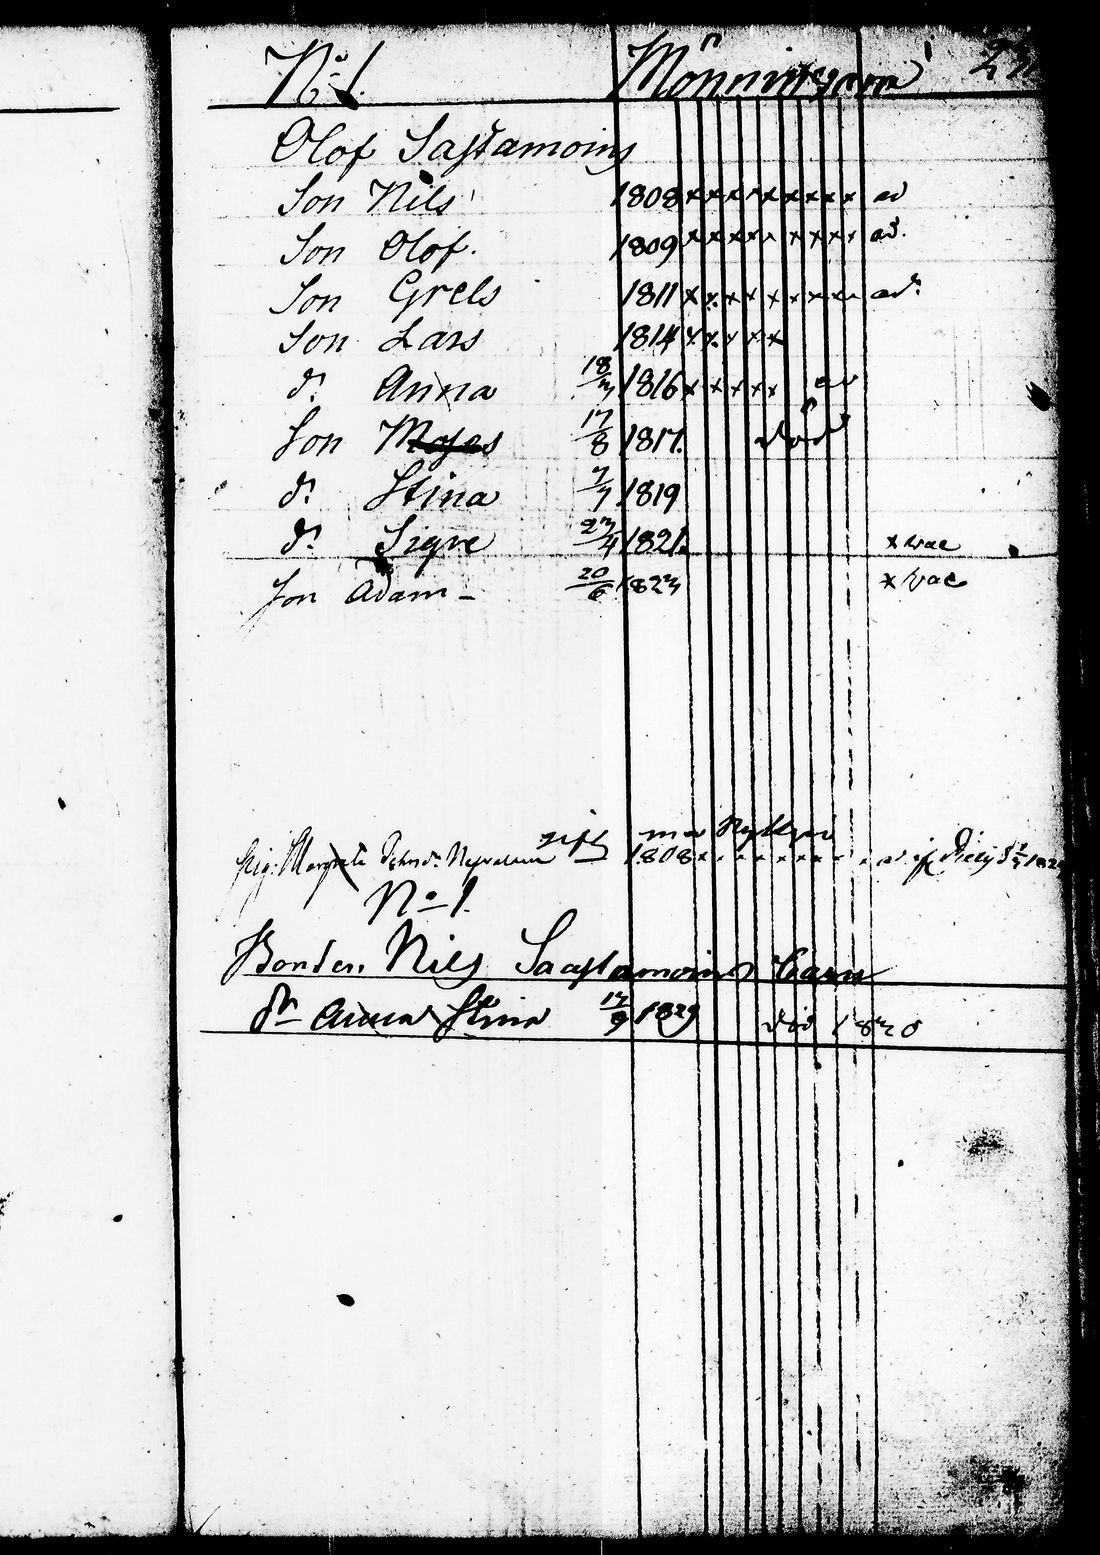 N:o 1. Mönninsaari 23
Olof Sastamoins
Son Nils 1808 x x x x x x x x x ad
Son Olof. 1809 x x x x x x x x x ad.
Son Grels 1811 x x x x x x x x x ad:
Son Lars 1814 x x x x x
d: Anna 18/3 1816 x x x x x ad
Son Moses 17/8 1817. död
d: Stina 7/7 1819
d: Sigre 23/4 1821. x vac
Son Adam - 20/6 1823 x vac
gift
Margreta 1808 x
No 1.
Bonden Nils Saastamoins Barn
dr Anna Stina 17/9 1829 död 1830